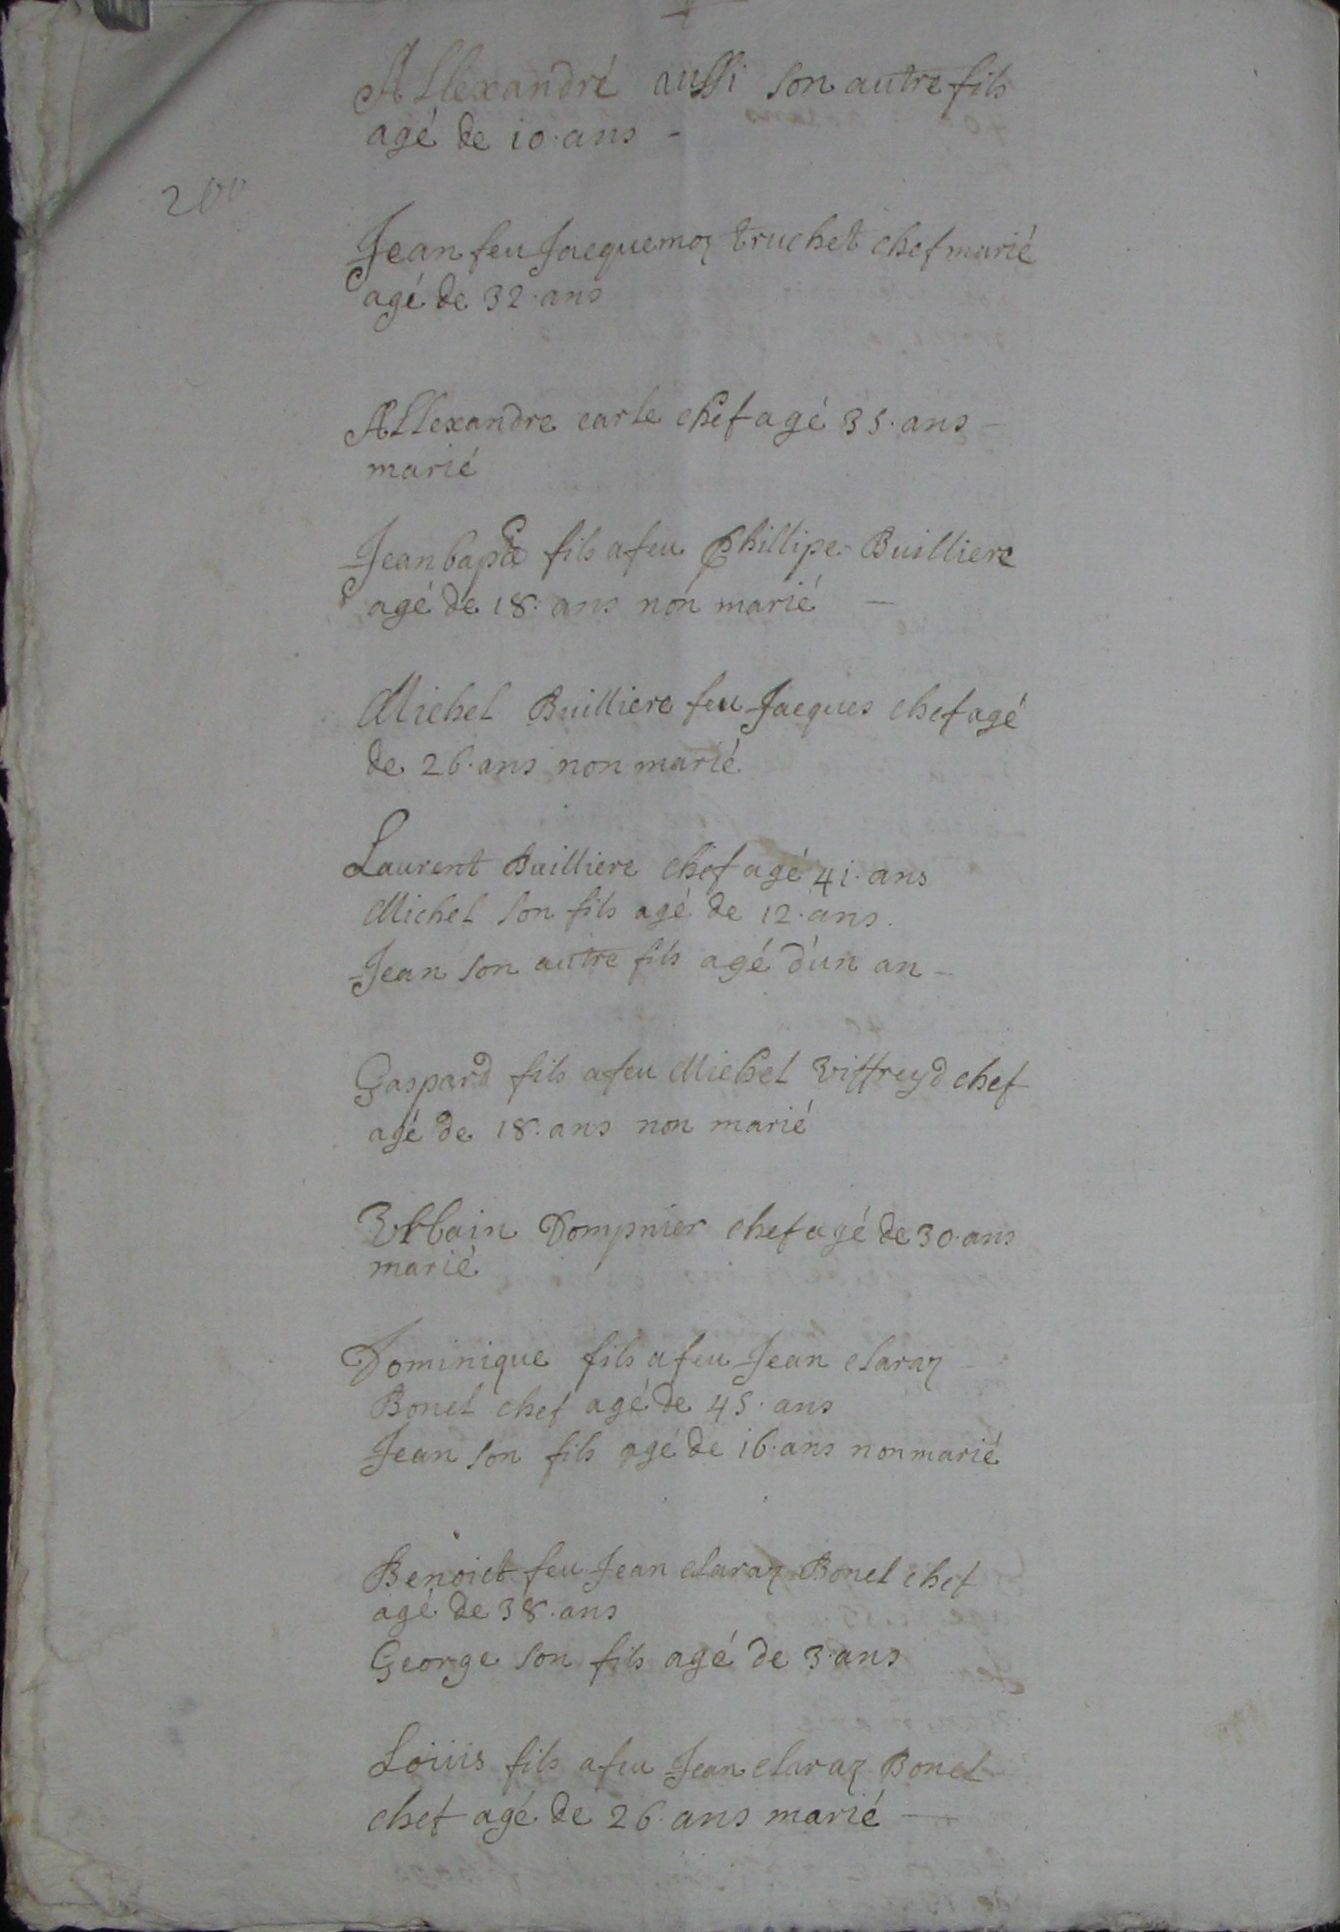 Allexandré aussi son autre fils
agé de 10. ans -
200
Jean feu Jacquemoz truchet chef marié
agé de 32. ans
Allexandre carle chef agé 35. ans -
marié
Jean bapte fils a feu Phillipe Builliere
agé de 18. ans non marié -
Michel Builliere feu Jacques chef agé
de 26. ans non marié
Laurent Builliere chef agé 41. ans
Michel son fils agé de 12. ans.
Jean son autre fils agé d'un an -
Gaspard fils a feu Michel Viffreyd chef
agé de 18. ans non marié
Vrbain Dompnier chef agé de 30. ans
marié
Dominique fils a feu Jean claraz
Bonel chef agé de 45. ans
Jean son fils agé de 16. ans non marié
Benoict feu Jean claraz Bonel chef
agé de 38. ans
George son fils agé de 3. ans
Loüis fils a feu Jean claraz Bonel
chef agé de 26. ans marié -